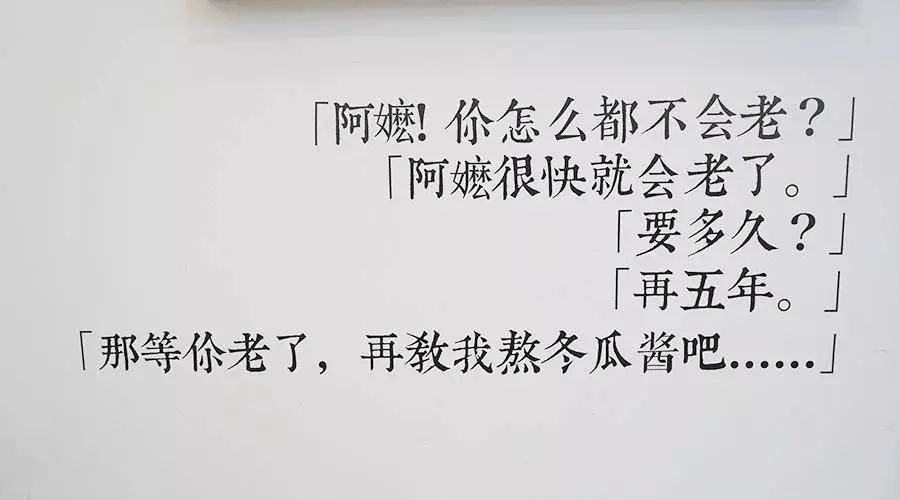 「阿嬷！你怎么都不会老？」
「阿嬷很快就会老了。」
「要多久？」
「再五年。」
「那等你老了，再教我熬冬瓜酱吧……」